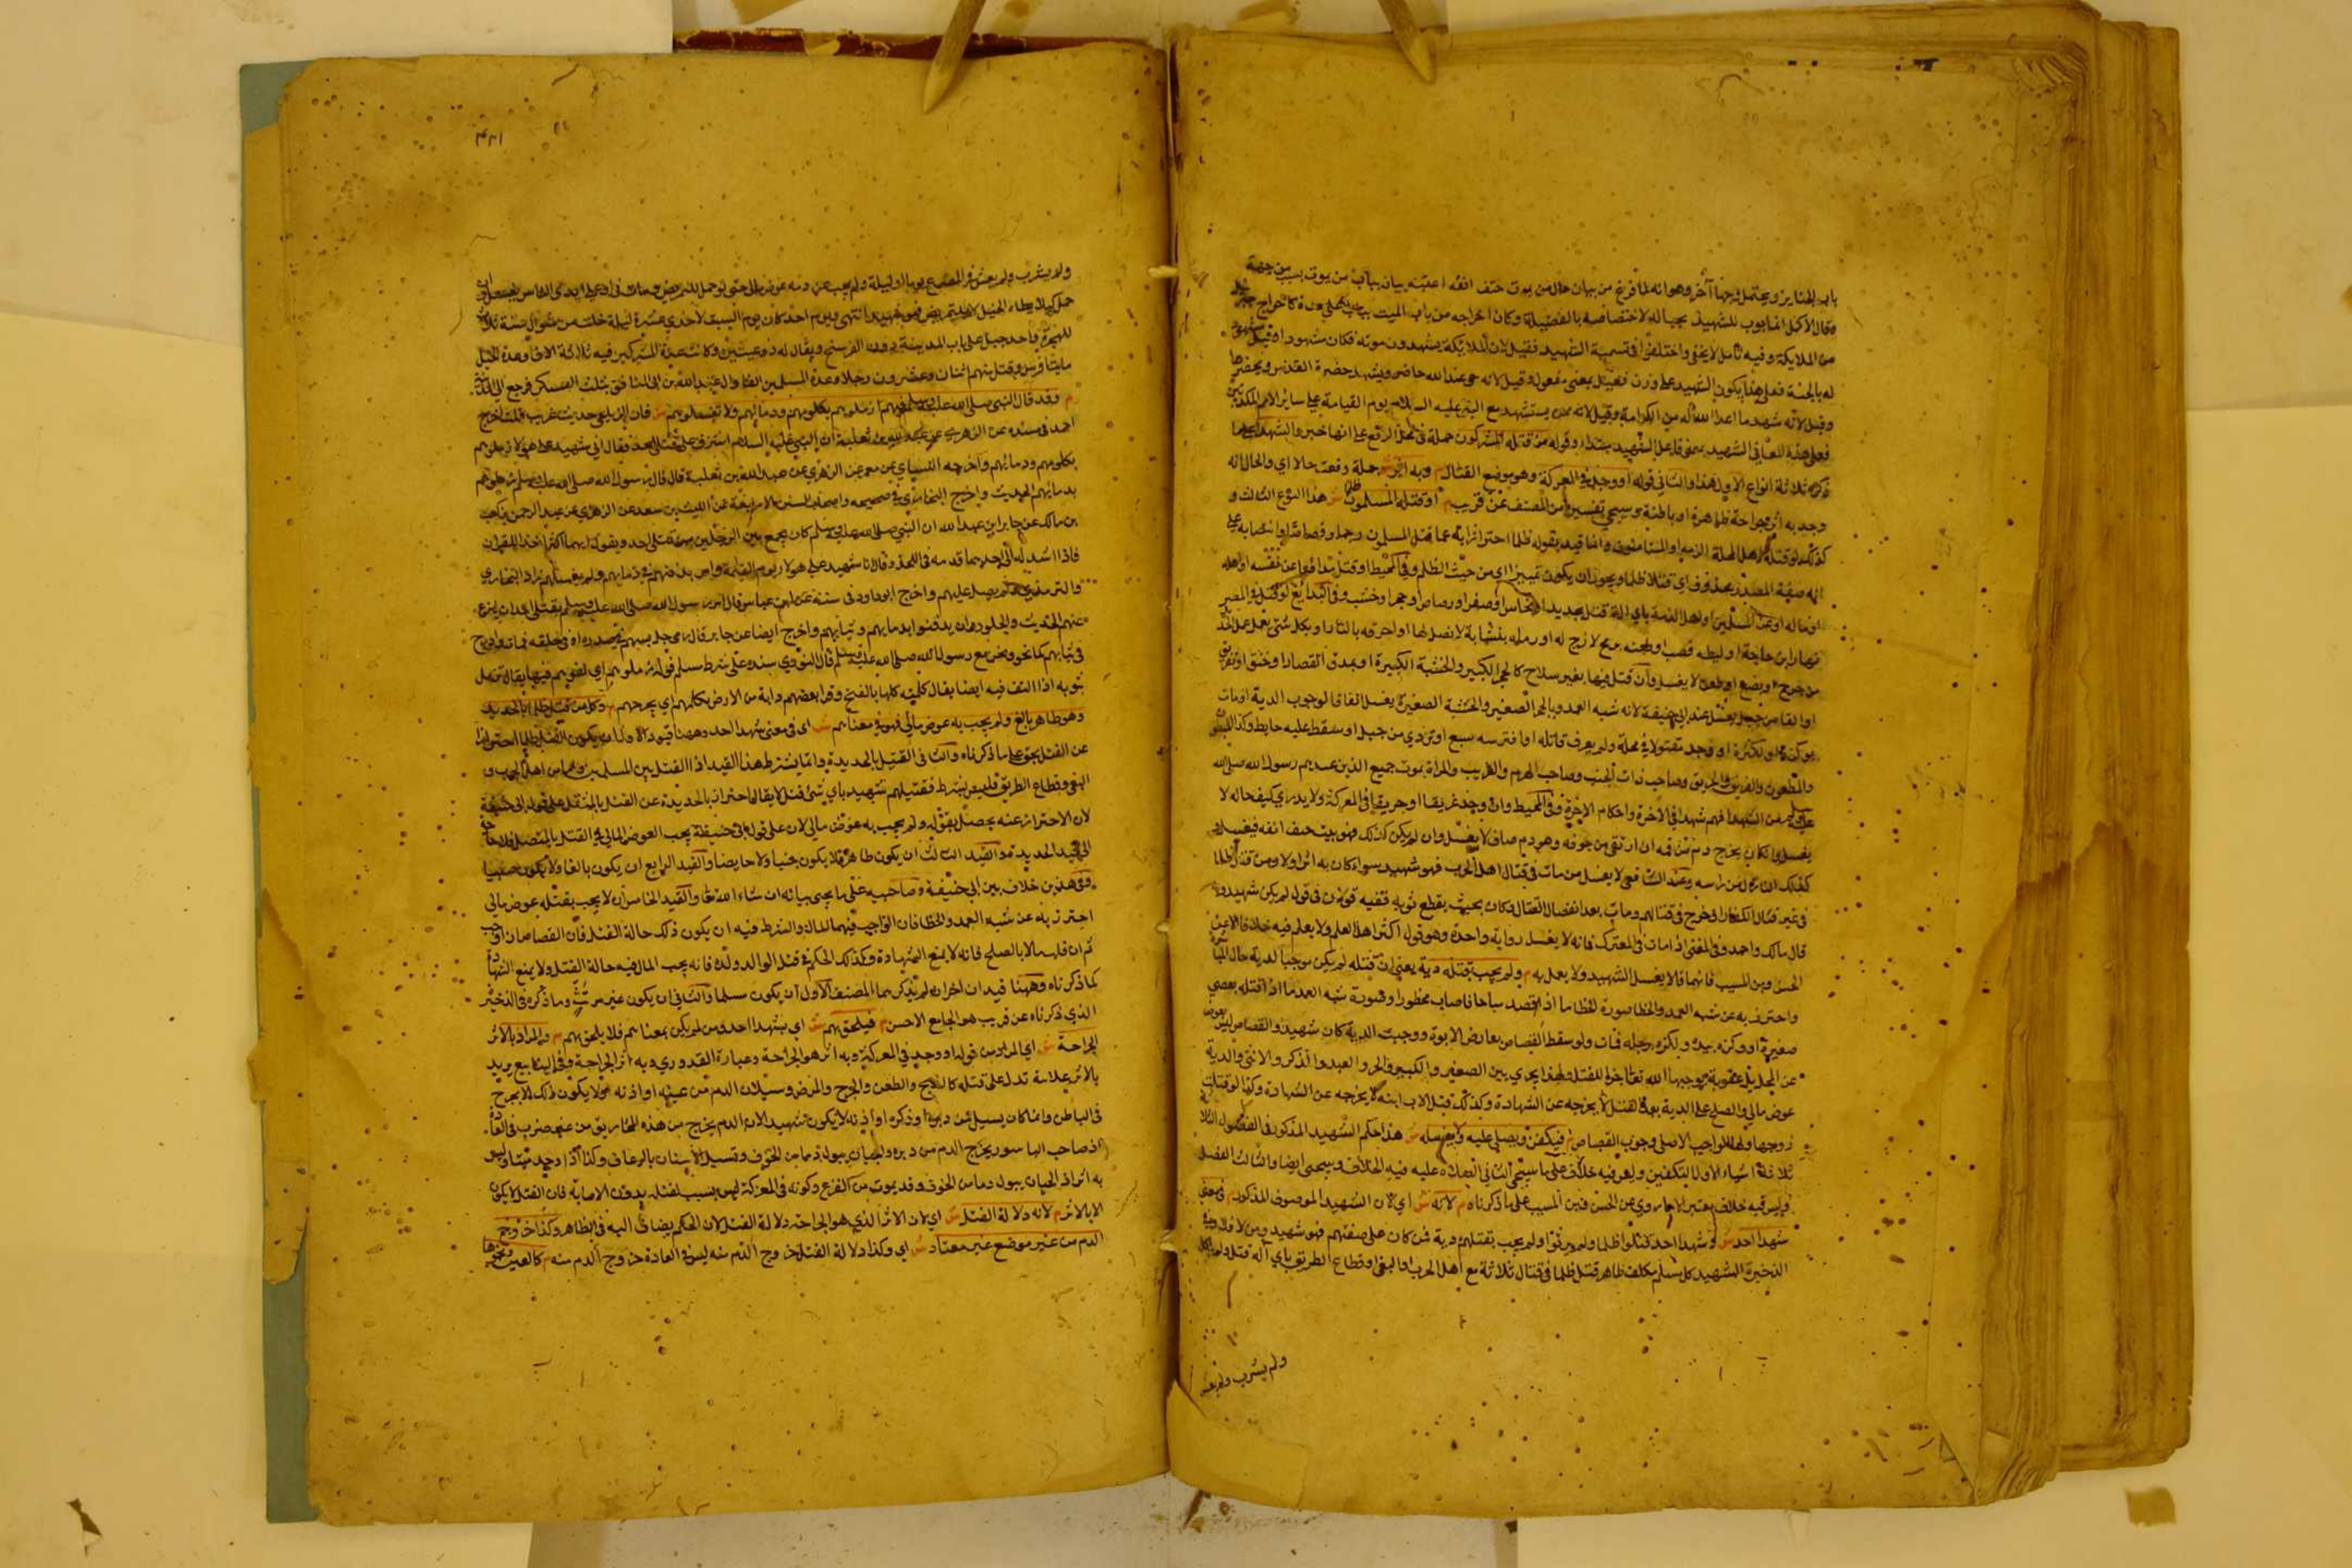 باب الجنايز ويحتمل وجها آخر وهو انه لما فرغ من بيان حال من يموت حتف انفه اعقبه بيان باب من يموت بسبب من جهة
وقال الاكمل انما بوب للشهيد بحياله لاختصاصه بالفضيلة وكان اخراجه من باب الميت
من الملايكة وفيه تامل لا يخفى واختلفوا في تسمية الشهيد فقيل لان الملايكة يشهدون موته فكان مشهودا وقيل مشهود
له بالجنة فعلى هذا يكون الشهيد على وزن فعيل بمعنى مفعول وقيل لانه حي عند الله حاضر ويشهد حضرة القدس ويحضرها
وقيل لانه شهد ما اعد الله له من الكرامة وقيل لانه ممن يستشهد مع النبي عليه السلام يوم القيامة على ساير الامم المكذبين
فعلى هذه المعاني الشهيد بمعنى فاعل الشهيد مبتدا وقوله من قتله المشركون جملة في محل الرفع على انها خبر والشهيد على ما
ذكره ثلاثة انواع الاول هذا والثاني قوله او وجد في المعركة وهو موضع القتال م وبه اثر ش جملة وقعت حالا اي والحال انه
وجد به اثر جراحة ظاهرة او باطنة وسيجي تفسيره من المصنف عن قريب م او قتله المسلمون ظلما ش هذا النوع الثالث و
كذلك لو قتله اهل الذمة او المستامنون وانما قيد بقوله ظلما احترازا به عما قتل المسلمون رجما وقصاصا وانتصابه على
انه صفة المصدر محذوف اي قتلا ظلما ويجوز ان يكون تمييزا اي من حيث الظلم وفي المحيط او قتل مدافعا عن نفسه او اهله
او ماله او عن المسلمين او اهل الذمة باي آلة قتل بحديد او نحاس او صفر او رصاص او حجر او خشب وفي البدائع لو قتل في المصر
نهارا
من جرح او بضع او طعن لا يغسل وان قتل فيها بغير سلاح كالحجر الكبير والخشبة الكبيرة او بمدق القصار او خنق او تغريق
او القا من جبل يغسل عند ابي حنيفة لانه شبه العمد وبالحجر الصغير والخشبة الصغيرة يغسل اتفاقا لوجوب الدية او مات
بوكزة او لكزة او وجد مقتولا في محلة ولم يعرف قاتله او افترسه سبع او تردي من جبل او سقط عليه حايط وكذا المبطون
والمطعون والغريق والحريق وصاحب ذات الجنب وصاحب الهدم والغريب والمراة بموت جميع الذين عدهم رسول الله صلى الله
عليه وسلم من الشهدا فهم شهدا في الآخرة واحكام الاخرة وفي المحيط وان وجد غريقا او حريقا في المعركة ولا يدري كيف حاله لا
يغسل
كذلك النازل من راسه وعند الشافعي لا يغسل من مات في قتال اهل الحرب فهو شهيد سواء كان به اثر او لا ومن قتل ظلما
في غير قتال الكفار او خرج في قتالهم ومات بعد انفصال القتال وكان بحيث يقطع بموته ففيه قولان في قول لم يكن شهيدا وبه
قال مالك واحمد وفي المغني اذا مات في المعترك فانه لا يغسل رواية واحدة وهو قول اكثر اهل العلم ولا يعلم فيه خلاف الا عن
الحسن وبن المسيب فانهما قالا يغسل الشهيد ولا يعمل به م ولم يجب بقتله دية يعني ان قتله لم يكن موجبا لدية حال
واحترز به عن شبه العمد والخطا صورة الخطا ما اذا قصد مباحا فاصاب محظورا وصورة شبه العمد ما اذا قتله بعصي
صغيرة او وكزه بيده ولكزه برجله فمات ولو سقط القصاص بعارض الابوة ووجبت الدية كان شهيدا والقصاص ليس بعوض
عن المحل بل عقوبة موجبها الله تعالى جزا للقتل ولهذا يجري بين الصغير والكبير والحر والعبد والذكر والانثى والدية
عوض مالي والصلح على الدية بهذا القتل لا يخرجه عن الشهادة وكذلك قتل الاب ابنه لا يخرجه عن الشهادة وكذا لو قتلت
زوجها ولها لان الواجب الاصلي وجوب القصاص م فيكفن ويصلى عليه ولا يغسل ش هذا حكم الشهيد المذكور في الفصول الثلا
ثلاثة اشياء الاول التكفين وليس فيه خلاف على ما سيجي الثاني الصلاة عليه وفيه الخلاف وسيجي ايضا والثالث الغسل
وليس فيه خلاف معتبر الا ما روي عن الحسن وبن المسيب على ما ذكرناه م لانه ش اي لان الشهيد الموصوف المذكور م في معنى
شهدا احد ش وشهدا احد قتلوا ظلما ولم يرتثوا ولم يجب بقتلهم دية فمن كان على صفتهم فهو شهيد ومن لا فلا وفي
الذخيرة الشهيد كل مسلم مكلف طاهر قتل ظلما في قتال ثلاثة مع اهل الحرب او البغي او قطاع الطريق باي آلة قتل ولم ياكل
ولم يشرب ولم يعش
ولم يشرب ولم يعش في المصرع يوما او ليلة ولم يجب عن دمه عوض مالي حتى لو حمل للتمريض ومات في ايدي الناس يغسل
حمل كيلا يطاه الخيل لا للتمريض فهو شهيد انتهى ويوم احد كان يوم السبت لاحدي عشرة ليلة خلت من شوال سنة ثلاث
للهجرة واحد جبل على باب المدينة دون الفرسخ ويقال له ذو عينين وكانت عدة المشركين فيه ثلاثة الاف وعدة الخيل
مايتا فرس وقتل منهم اثنان وعشرون رجلا وعدة المسلمين الفا وان عبد الله بن ابي المنافق بثلث العسكر فرجع الى المدينة
م وقد قال النبي صلى الله عليه وسلم فيهم زملوهم بكلومهم ودمائهم ولا تغسلوهم ش قال الزيلعي حديث غريب قلت اخرج
احمد في مسنده عن الزهري عن عبد الله بن ثعلبة ان النبي عليه السلام اشرف على قتلى احد فقال اني شهيد على هؤلاء زملوهم
بكلومهم ودمائهم واخرجه النسائي عن معمر عن الزهري عن عبد الله بن ثعلبة قال قال رسول الله صلى الله عليه وسلم زملوهم
بدمائهم الحديث واخرج البخاري في صحيحه واصحاب السنن الاربعة عن الليث بن سعد عن الزهري عن عبد الرحمن بن كعب
بن مالك عن جابر بن عبد الله ان النبي صلى الله عليه وسلم كان يجمع بين الرجلين من قتلى احد ويقول ايهما اكثر اخذا للقران
فاذا اشير له الى احدهما قدمه في اللحد وقال انا شهيد على هولاء يوم القيمة وامر بدفنهم في دمايهم ولم يغسلهم زاد البخاري
والترمذي ولم يصل عليهم واخرج ابو داود في سننه عن بن عباس قال امر رسول الله صلى الله عليه وسلم بقتلى احد ان ينزع
عنهم الحديد والجلود وان يدفنوا بدمايهم وثيابهم واخرج ايضا عن جابر قال رمي رجل بسهم في صدره او في حلقه فمات فادرج
في ثيابه كما هو ونحن مع رسول الله صلى الله عليه وسلم قال النووي سنده على شرط مسلم قوله زملوهم اي لفوهم فيها يقال تزمل
بثوبه اذا التف فيه ايضا يقال كلمته كلما بالفتح وقرا بعضهم دابة من الارض تكلمهم اي تجرحهم م وكل من قتل ظلما بالحديد
وهو طاهر بالغ ولم يجب به عوض مالي فهو في معناهم ش اي في معنى شهدا احد وههنا قيود الاول ان يكون القتل ظلما احترازا
عن القتل بحق على ما ذكرناه والثاني القتيل بالحديدة وانما يشترط هذا القيد اذا القتل بين المسلمين واما من اهل الحرب و
البغي وقطاع الطريق فليس بشرط فقتيلهم شهيد باي شئ قتل لا يقال احتراز بالحديدة عن القتل بالمثقل على قول ابي حنيفة
لان الاحتراز عنه يحصل بقوله ولم يجب به عوض مالي لان على قول ابي حنيفة يجب العوض المالي في القتل بالمثقل فلا حاجة
الى قيد الحديدة والقيد الثالث ان يكون طاهرا فلا يكون جنبا ولا حايضا والقيد الرابع ان يكون بالغا ولا يكون صبيا
وفي هذين خلاف بين ابي حنيفة وصاحبيه على ما يجي بيانه ان شاء الله تعالى والقيد الخامس ان لا يجب بقتله عوض مالي
احترز به عن شبه العمد والخطا فان الواجب فيهما المال والشرط فيه ان يكون ذلك حالة القتل فان القصاص ان اوجب
ثم انقلب مالا بالصلح فانه لا يمنع الشهادة وكذلك الحكم في قتل الوالد ولده فانه يجب المال فيه حالة القتل ولا يمنع الشهادة
كما ذكرناه وههنا قيدان اخران لم يذكرهما المصنف الاول ان يكون مسلما والثاني ان يكون غير مرتث وما ذكره في الذخيرة
الذي ذكرناه عن قريب هو الجامع الاحسن م فيلحق بهم ش اي بشهدا احد ومن لم يكن بمعناهم فلا يلحق بهم م والمراد بالاثر
الجراحة ش اي المراد من قوله او وجد في المعركة وبه اثر هو الجراحة وعبارة القدوري وبه اثر الجراحة وفي الينابيع ويريد
بالاثر علامة تدل على قتله كالذبح والطعن والجرح والرض وسيلان الدم من عينه او اذنه ولا يكون ذلك الا بجرح
في الباطن وانما كان يسيل من دبره او ذكره او انفه لا يكون شهيدا لان الدم يخرج من هذه المخاريق من غير ضرب في العادة
اذ صاحب الباسور يخرج الدم من دبره والجبان يبول دما من الخوف وتسيل الاسنان بالرعاف وكذا اذا وجد ميتا وليس
به اثر اذ الجبان يبول دما من الخوف وقد يموت من الفزع وكونه في المعركة ليس بسبب لقتله بدون الاصابة فان القتل لا يكون
الا بالاثر م لانه دلالة القتل ش اي لان الاثر الذي هو الجراحة دلالة القتل لان الحكم يضاف اليه في الظاهر وكذا خروج
الدم من غير موضع معتاد ش اي وكذا دلالة القتل خروج الدم منه ليس في العادة خروج الدم منه م كالعين ونحوها